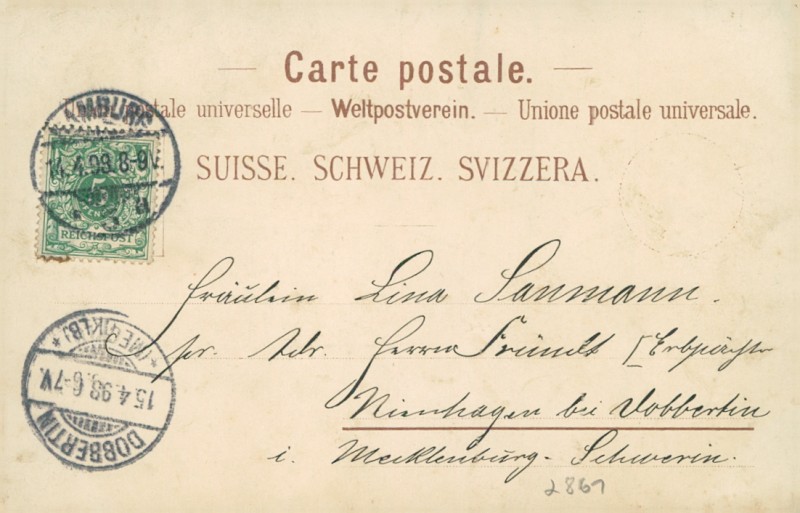 — Carte postale. —
Union postale universelle — Weltpostverein. — Unione postale universale.
SUISSE. SCHWEIZ. SVIZZERA.
HAMBURG
14.4.98.8-9V.
5
REICHSPOST
Fräulein Lina Sanmann.
pr. Adr. Herrn Fründt [Erbpächter
Nienhagen bei Dobbertin
i. Mecklenburg-Schwerin.
* (MECKLB) *
15.4.98.6-7V.
DOBBERTIN
2869